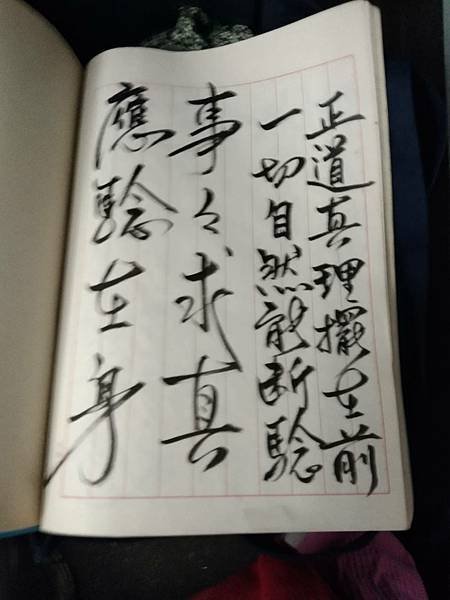 正道真理擺在前
一切自然能斷驗
事々求真
應驗在身